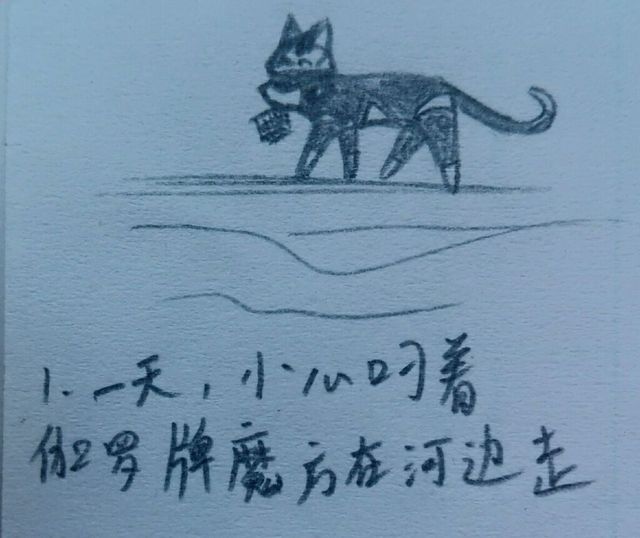 1. 一天，小心叼着
伽罗牌魔方在河边走